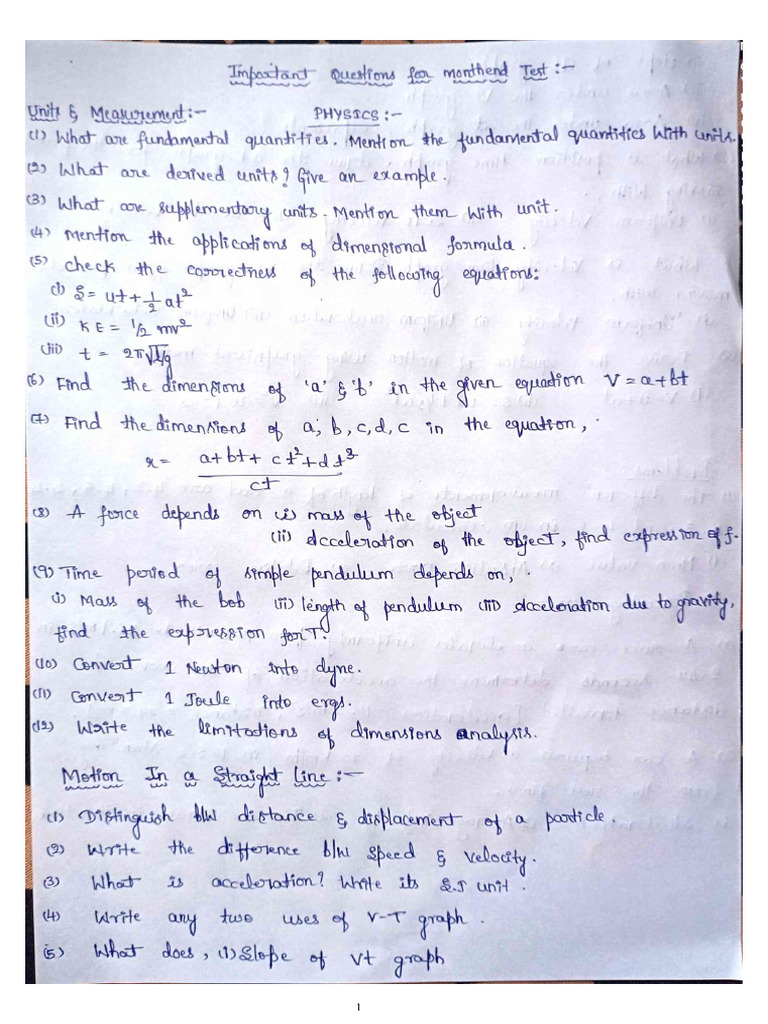 Important Questions for monthend Test:-
Units & Measurement:- PHYSICS:-
(1) What are fundamental quantities. Mention the fundamental quantities With units.
(2) What are derived units? Give an example.
(3) What are supplementary units. Mention them With unit.
(4) Mention the applications of dimensional formula.
(5) check the correctness of the following equations:
(i) S = ut + 1/2 at²
(ii) KE = 1/2 mv²
(iii) t = 2π√l/g
(6) Find the dimensions of 'a' & 'b' in the given equation V = a+bt
(7) Find the dimensions of a, b, c, d, c in the equation,
x = a+bt+ ct²+dt³
ct
(8) A force depends on (i) mass of the object
(ii) Acceleration of the object, find expression of f.
(9) Time period of simple pendulum depends on,
(i) Mass of the bob (ii) length of pendulum (iii) Acceleration due to gravity,
find the expression for T.
(10) Convert 1 Newton into dyne.
(11) Convert 1 Joule into ergs.
(12) Write the limitations of dimensions analysis.
Motion In a Straight Line:-
(1) Distinguish b/w distance & displacement of a particle.
(2) Write the difference b/w speed & velocity.
(3) What is acceleration? Write its S.I unit.
(4) Write any two uses of V-T graph.
(5) What does, (i) Slope of Vt graph
1